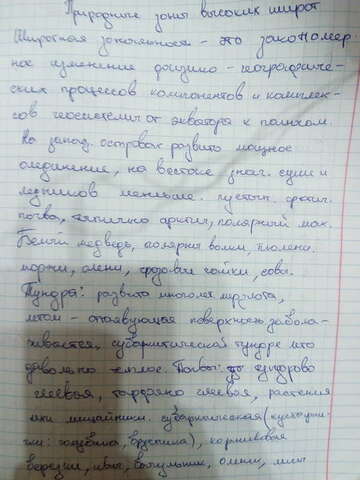 Природные зоны высоких широт
Широтная зональность - это закономер
ное изменение физико - географиче-
ских процессов компонентов и комплек-
сов геосистем от экватора к полюсам.
На запад. островах развито мощное
оледенение, на востоке знач. суши и
ледников меньше. пустын. арктич.
почва, типично арктич, полярный мак.
Белый медведь, полярны волки, тюлени.
моржи, олени, чайки, совы.
Тундра: развита многолет мрзлота,
летом - оттаивающая поверхность забола-
чивается, субарктической тундре лето
довольно теплое. Почвы: тундрово
глеевья, торфяно глеевья, растения
мхи лишайники. субарктическая (кустарни-
чки: голубика, брусника), карликовая
березки, ивы, багульник, олени, лисы